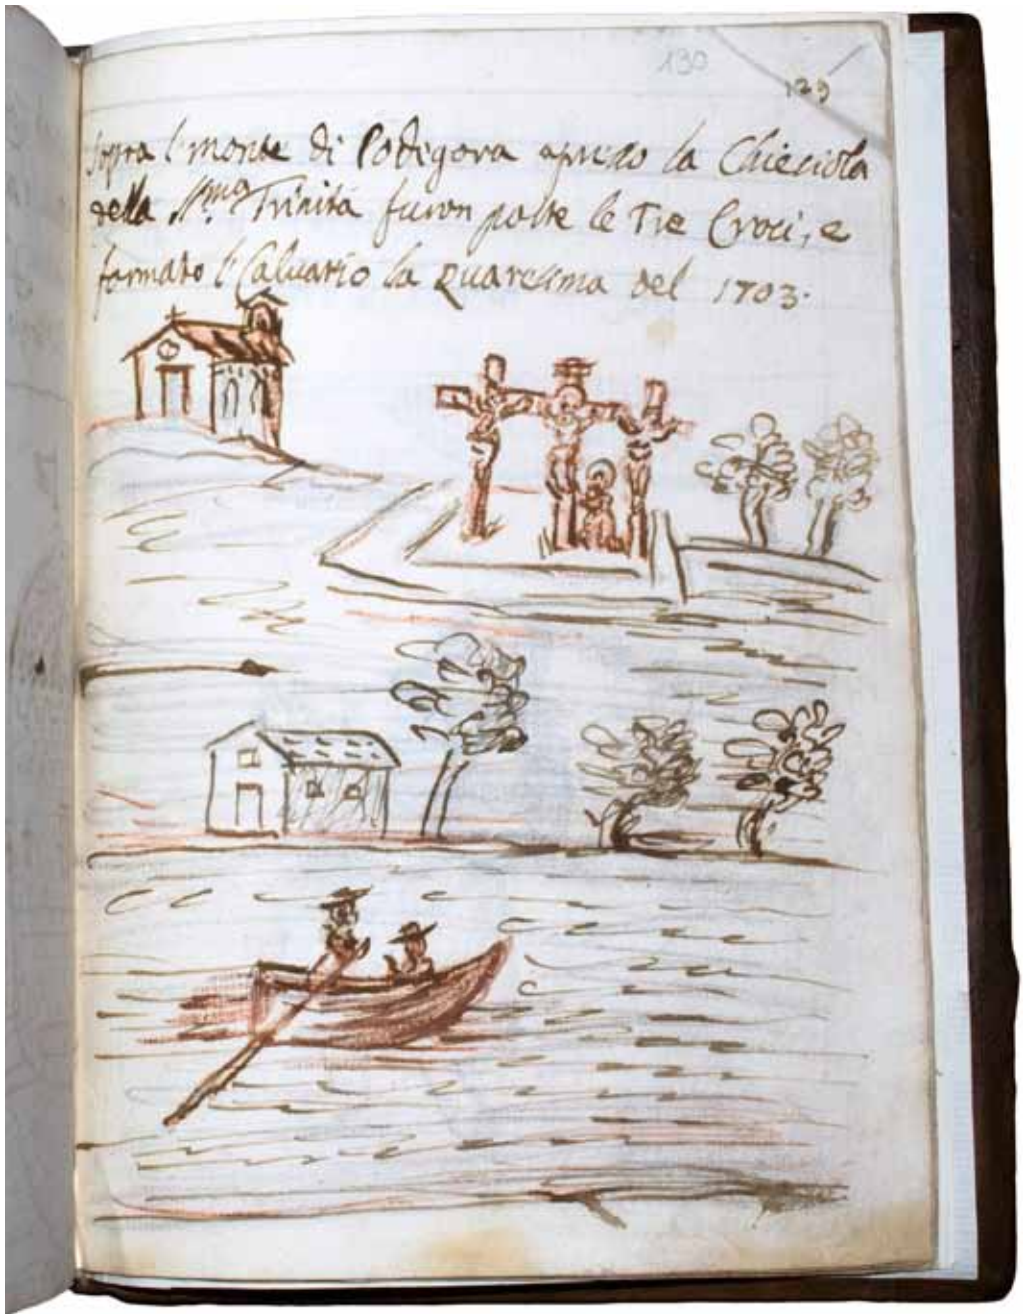 130
129
sopra l'monte di Podigora apresso la Chiesiola
della SS.ma Trinità furon poste le Tre Croci, e
formato l'Calvario la Quaresima del 1703.